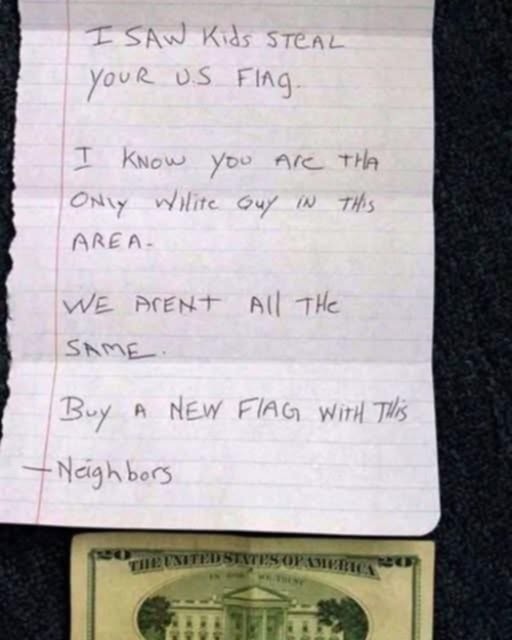 I SAW Kids STEAL
YOUR U.S FlAg.
I KNOW you Are THA
ONly WHite Guy iN THis
AREA-
WE ArENT All THe
SAME.
Buy A NEW FlAG WiTH THis
-Neighbors
20 THE UNITED STATES OF AMERICA 20
IN GOD WE TRUST